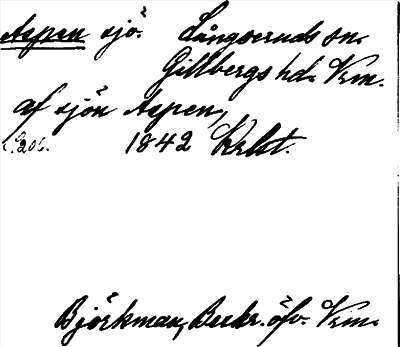 Aspen sjö. Långseruds sn.
Gillbergs hd. Vrm.
af sjön Aspen,
1842 Krht.
Björkman, Beskr. öfv. Vrm.